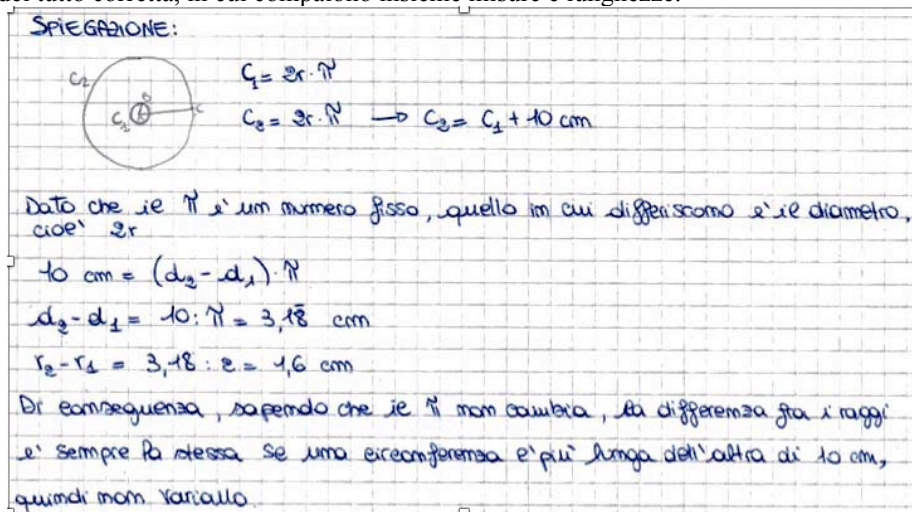 del tutto corretta, in cui compaiono insieme misure e lunghezze.
SPIEGAZIONE:
C₂ C₁ O C
C₁ = 2r · π
C₂ = 2r · π → C₂ = C₁ + 10 cm
Dato che il π è un numero fisso, quello in cui differiscono è il diametro,
cioè 2r
10 cm = (d₂ - d₁) · π
d₂ - d₁ = 10 : π = 3,18 cm
r₂ - r₁ = 3,18 : 2 = 1,6 cm
Di conseguenza, sapendo che il π non cambia, la differenza fra i raggi
è sempre la stessa se una circonferenza è più lunga dell'altra di 10 cm,
quindi non